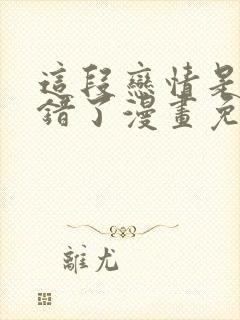 這段戀情是
錯了漫畫免
離尤